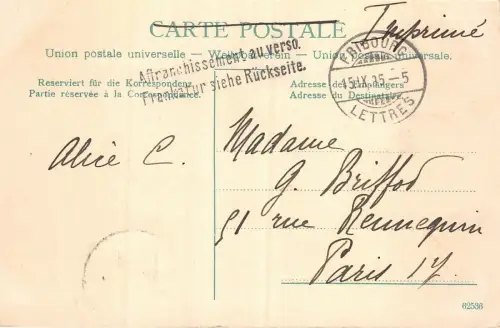 CARTE POSTALE
Imprimé
Union postale universelle — Weltpostverein — Union postale universale.
Affranchissement au verso.
Frankatur siehe Rückseite.
Reserviert für die Korrespondenz
Partie réservée à la Correspondance.
Adresse des Empfängers
Adresse du Destinataire.
FRIBOURG
15.IX.05.–5
LETTRES
Alice C.
Madame
G. Briffod
51 rue Rennequin
Paris 17.
62536